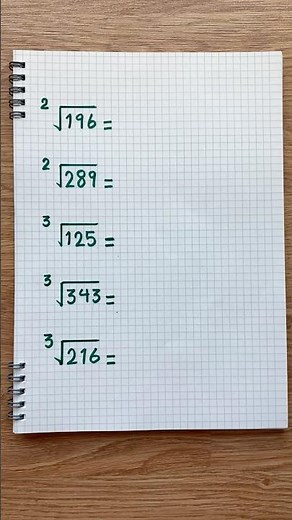 ²√196 =
²√289 =
³√125 =
³√343 =
³√216 =